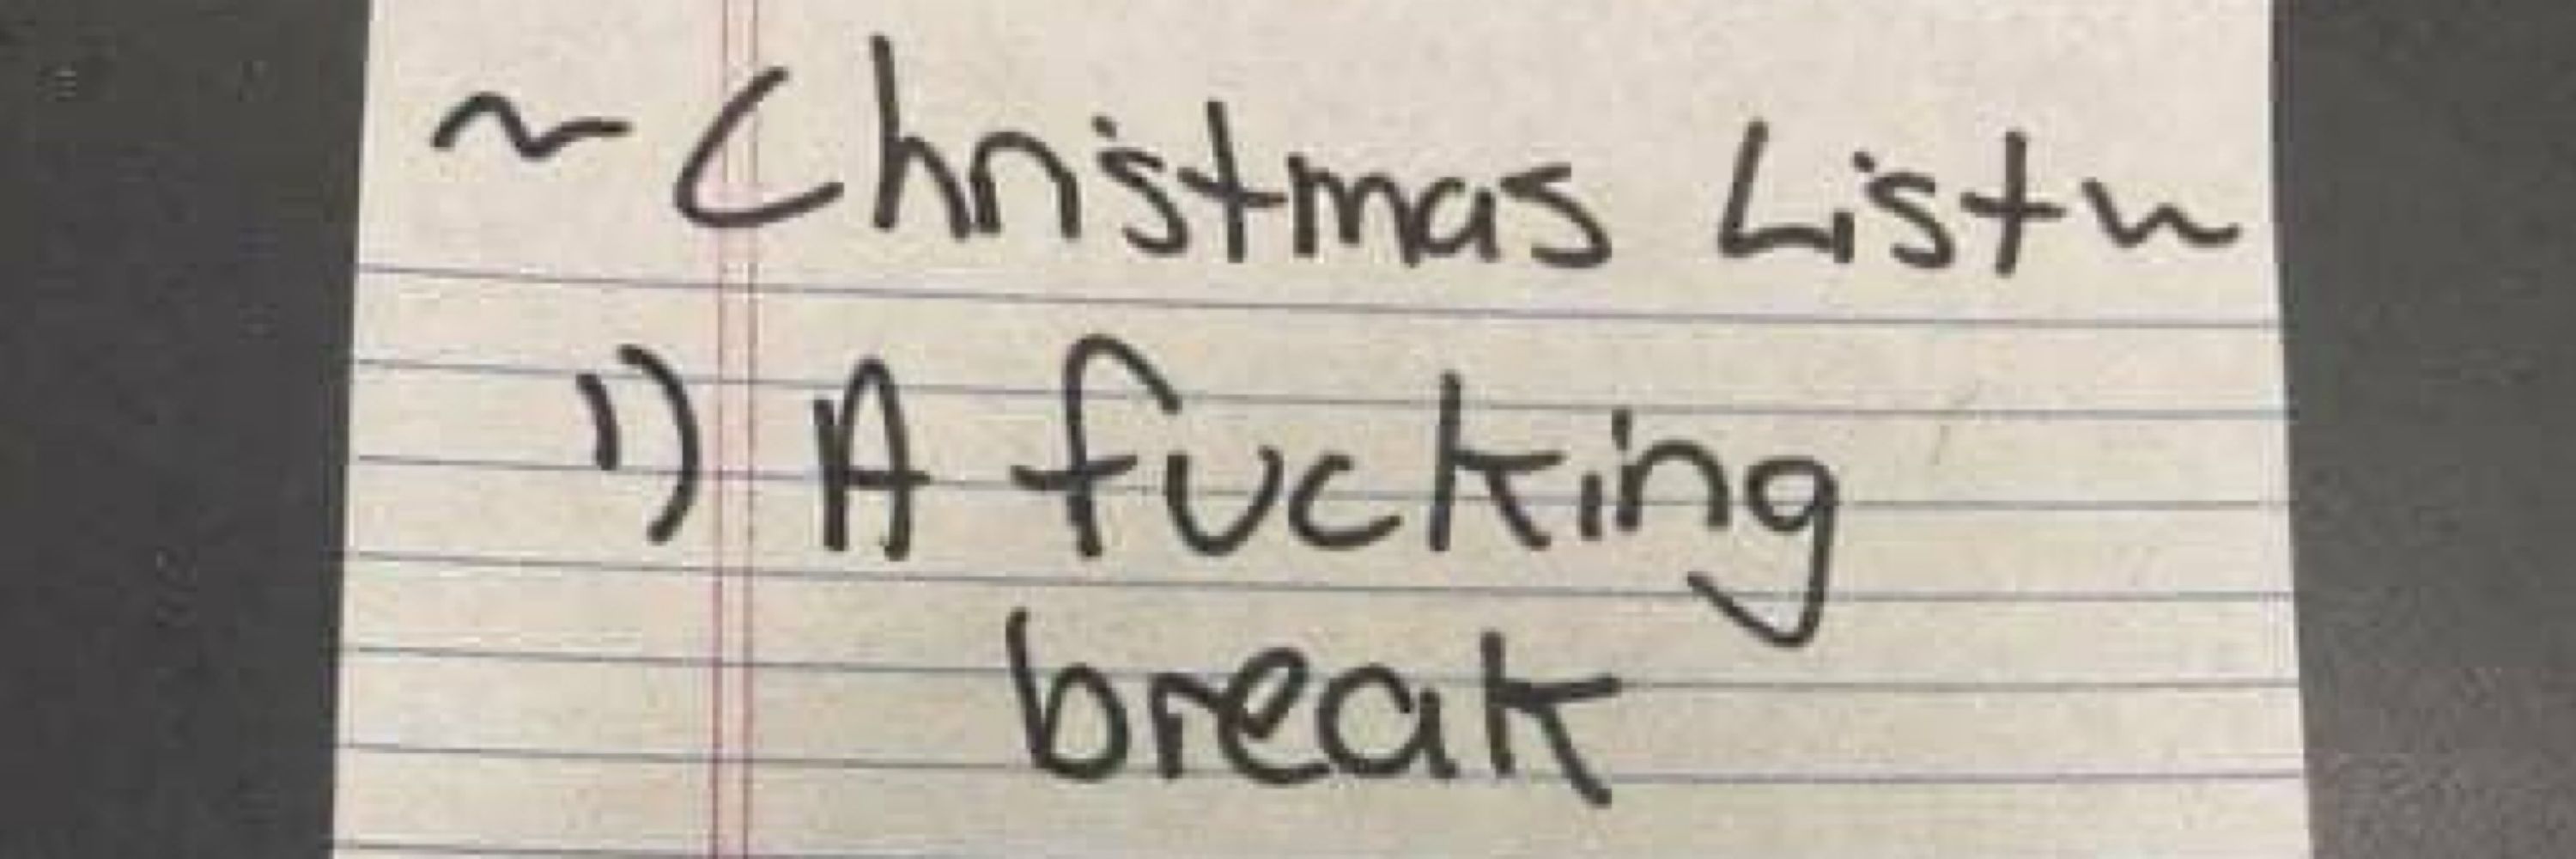 ~Christmas List~
1) A fucking
break